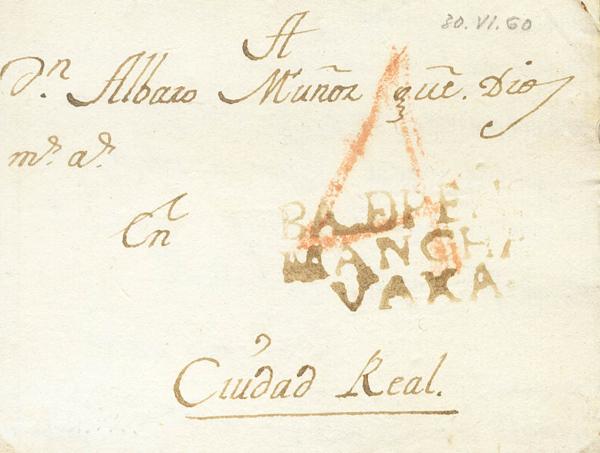 30.VI.60
A
Dn. Albaro Muñoz que. Dios
ms. as.
En
BA.DPEÑ
MANCHA
VAXA.
Ciudad Real.